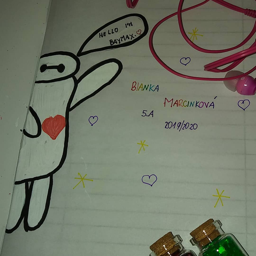 HELLO I'M
BAYMAX!
BIANKA
MARCINKOVÁ
5.A
2019/2020